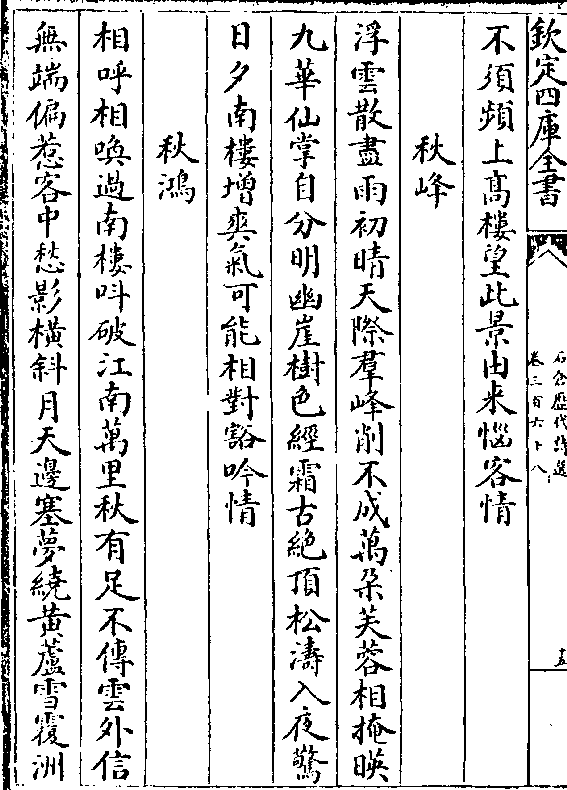 欽定四庫全書
石倉歷代詩選
卷三百六十八
十五
不須頻上高樓望此景由来惱客情
秋峰
浮雲散盡雨初晴天際羣峰削不成萬朶芙蓉相掩暎
九華仙掌自分明幽崖樹色經霜古絶頂松濤入夜驚
日夕南樓增爽氣可能相對豁吟情
秋鴻
相呼相喚過南樓呌破江南萬里秋有足不傳雲外信
無端偏惹客中愁影橫斜月天邊塞夢繞黄蘆雪覆洲